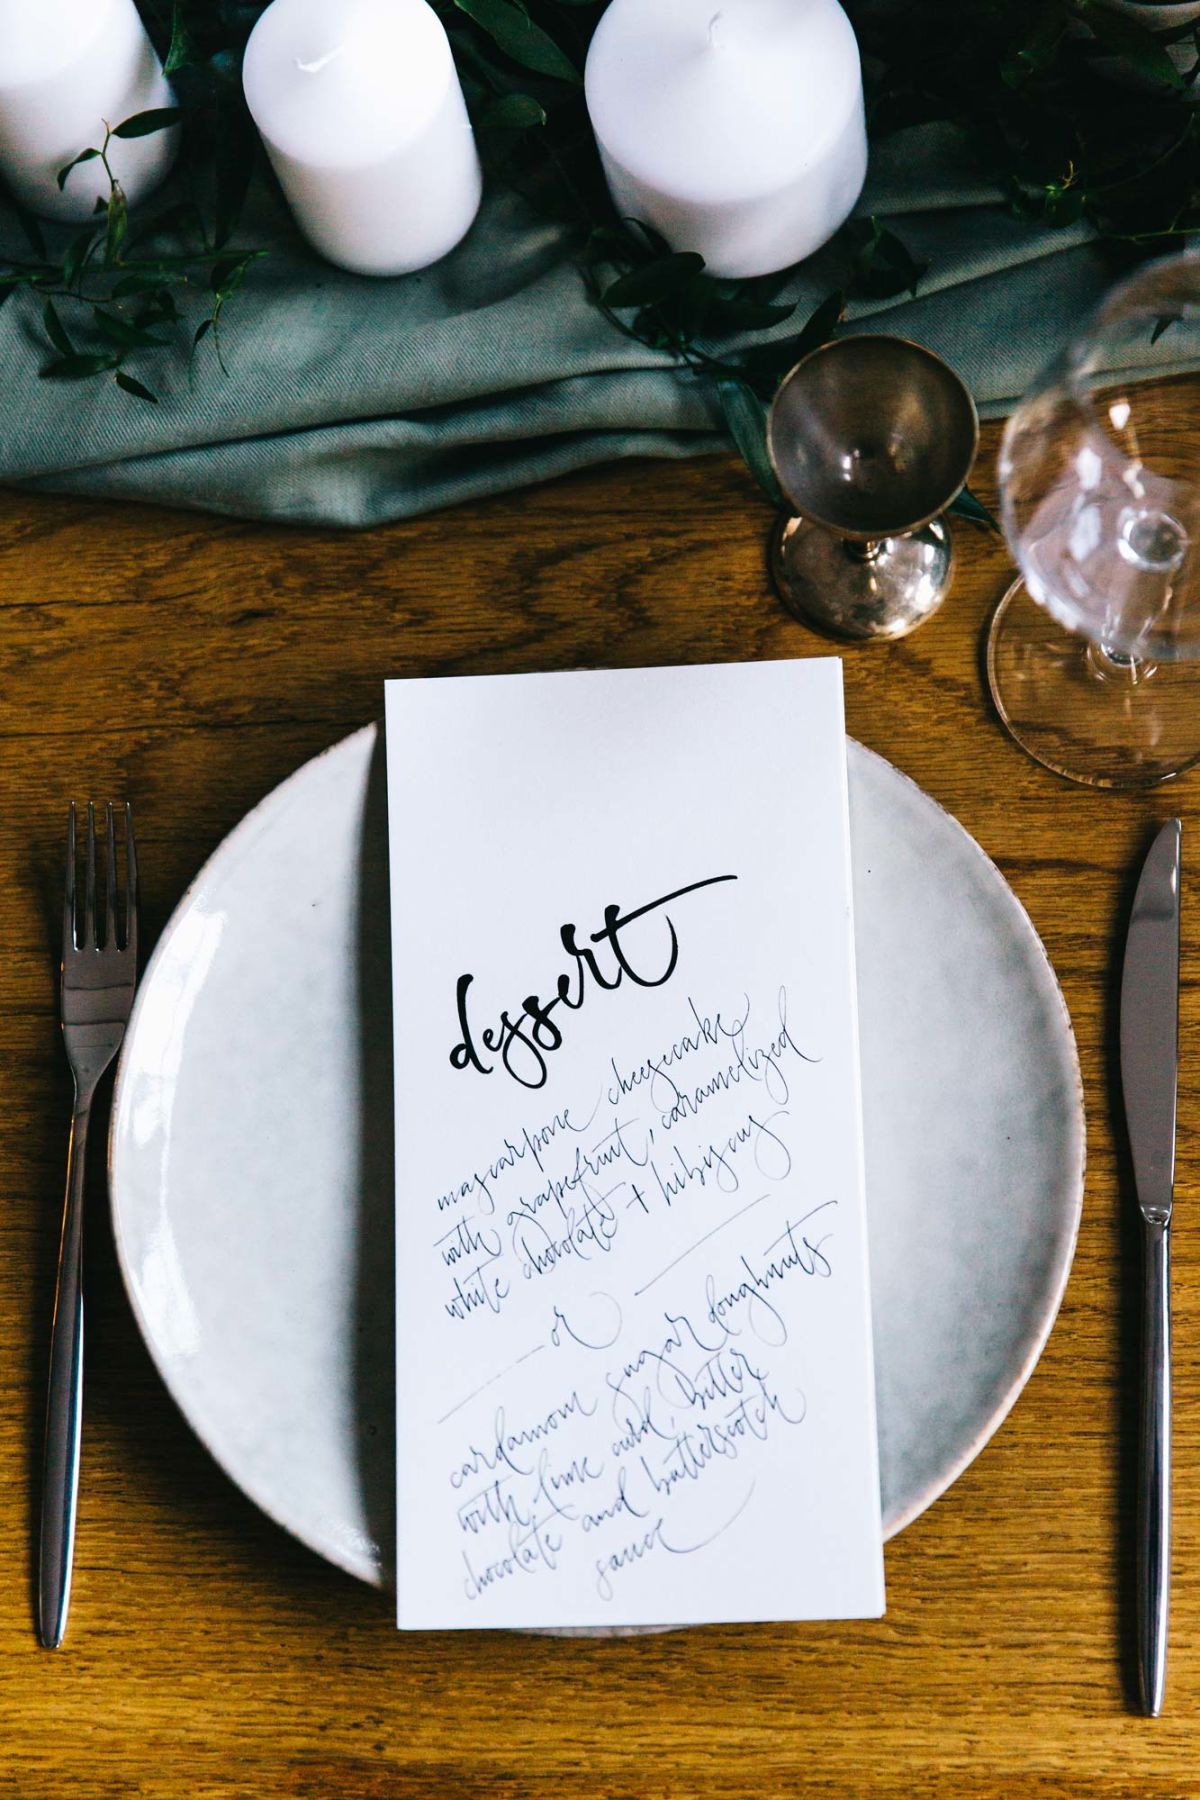 dessert
mascarpone cheesecake
with grapefruit, caramelized
white chocolate + hibiscus
or
cardamom sugar doughnuts
with lime curd, bitter
chocolate and butterscotch
sauce